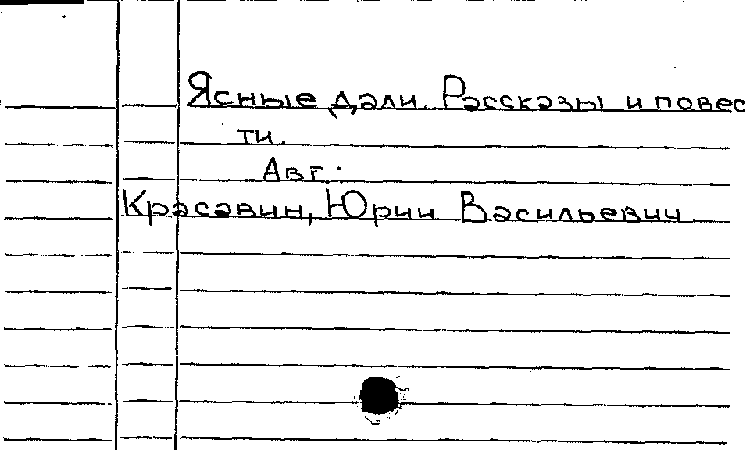 Ясные дали. Рассказы и повес
ти.
Авт.
Красавин, Юрий Васильевич